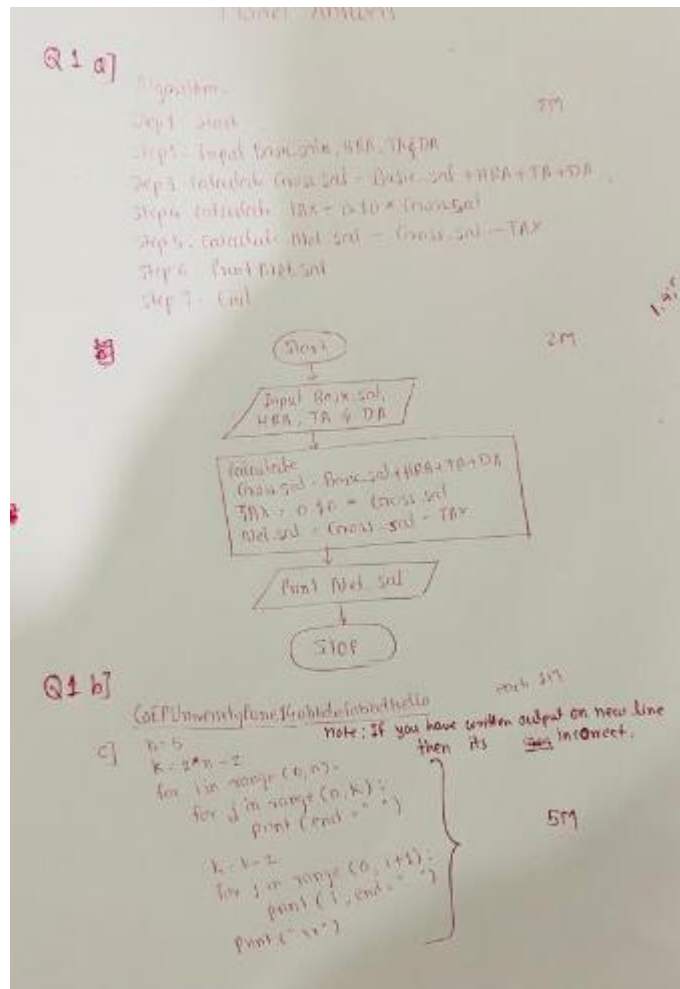 Model Answers
Q1 a]
Algorithm.
Step 1: Start
Step 2: Input Basic_sal, HRA, TA & DA
Step 3: Calculate Gross_sal = Basic_sal + HRA + TA + DA
Step 4: Calculate TAX = 0.10 * Gross_sal
Step 5: Calculate Net_sal = Gross_sal - TAX
Step 6: Print Net_sal
Step 7: End
2M
Start
Input Basic_sal,
HRA, TA & DA
Calculate
Gross_sal = Basic_sal + HRA + TA + DA
TAX = 0.10 * Gross_sal
Net_sal = Gross_sal - TAX
Print Net_sal
STOP
Q1 b]
each 1M
Note: If you have written output on new line
then its incorrect.
c]
n=5
k=2*n-2
for i in range(0,n):
for j in range(0,k):
print(end=" ")
k=k-2
for j in range(0, i+1):
print(
, end=" ")
print("\r")
5M